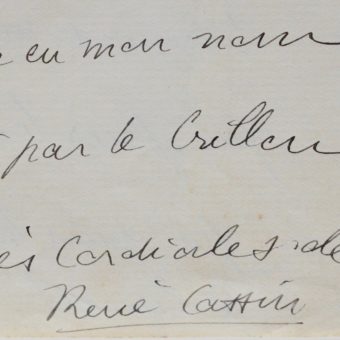 en mon nom
par le Crillon
Cordiales de
René Cassin